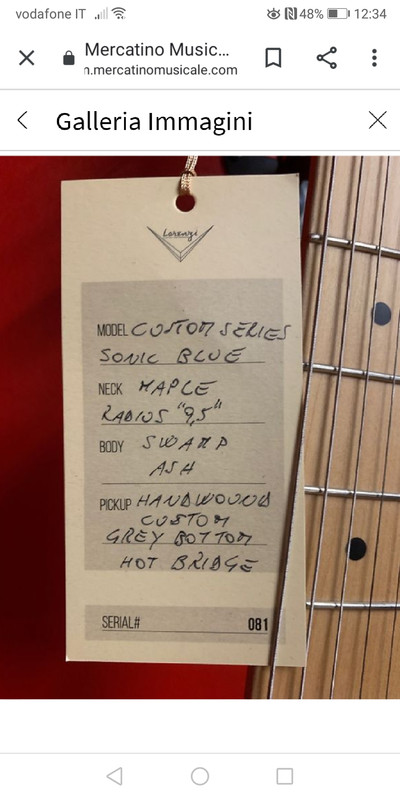 vodafone IT 48% 12:34
Mercatino Music...
n.mercatinomusicale.com
Galleria Immagini
Lorenzi
MODEL CUSTOM SERIES
SONIC BLUE
NECK MAPLE
RADIUS "9,5"
BODY SWAMP
ASH
PICKUP HANDWOUND
CUSTOM
GREY BOTTOM
HOT BRIDGE
SERIAL# 081